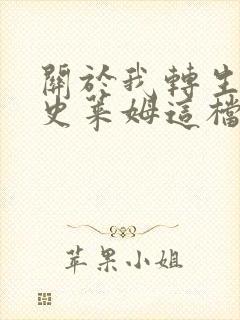 關於我轉生
史萊姆這檔
苹果小姐